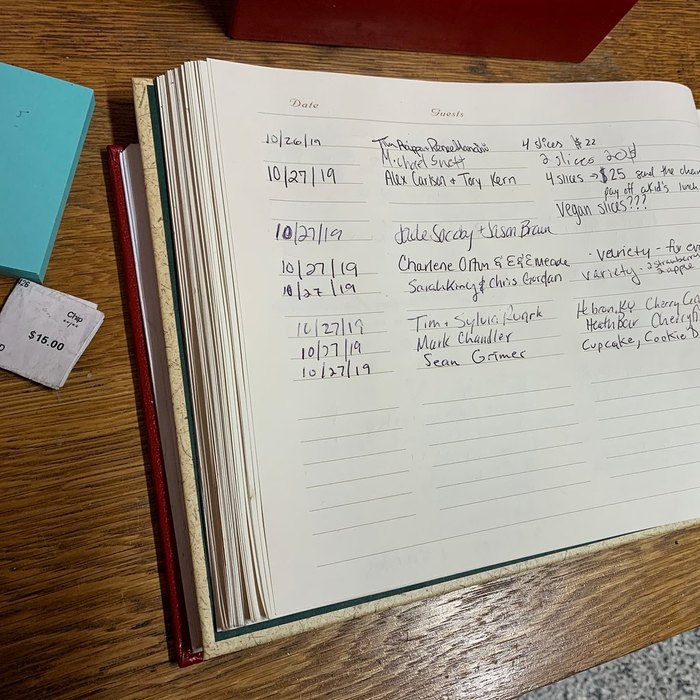 Date Guests
10/26/19 4 slices $22
Michael 2 slices 20$
10/27/19 Alex Carlson + Tory Kern 4 slices → $25 send the
pay off a kid's lunch
Vegan slices???
10/27/19 Jade + Jason Braun
10/27/19 Charlene & variety - for
10/27/19 Sarah King & Chris Gordan variety - 2 strawberry
2 apple
10/27/19 Tim + Sylvia Hebron, KY Cherry
10/27/19 Mark Chandler Heath bar Cherry
10/27/19 Sean Grimer Cupcake, Cookie D
Chip
$15.00